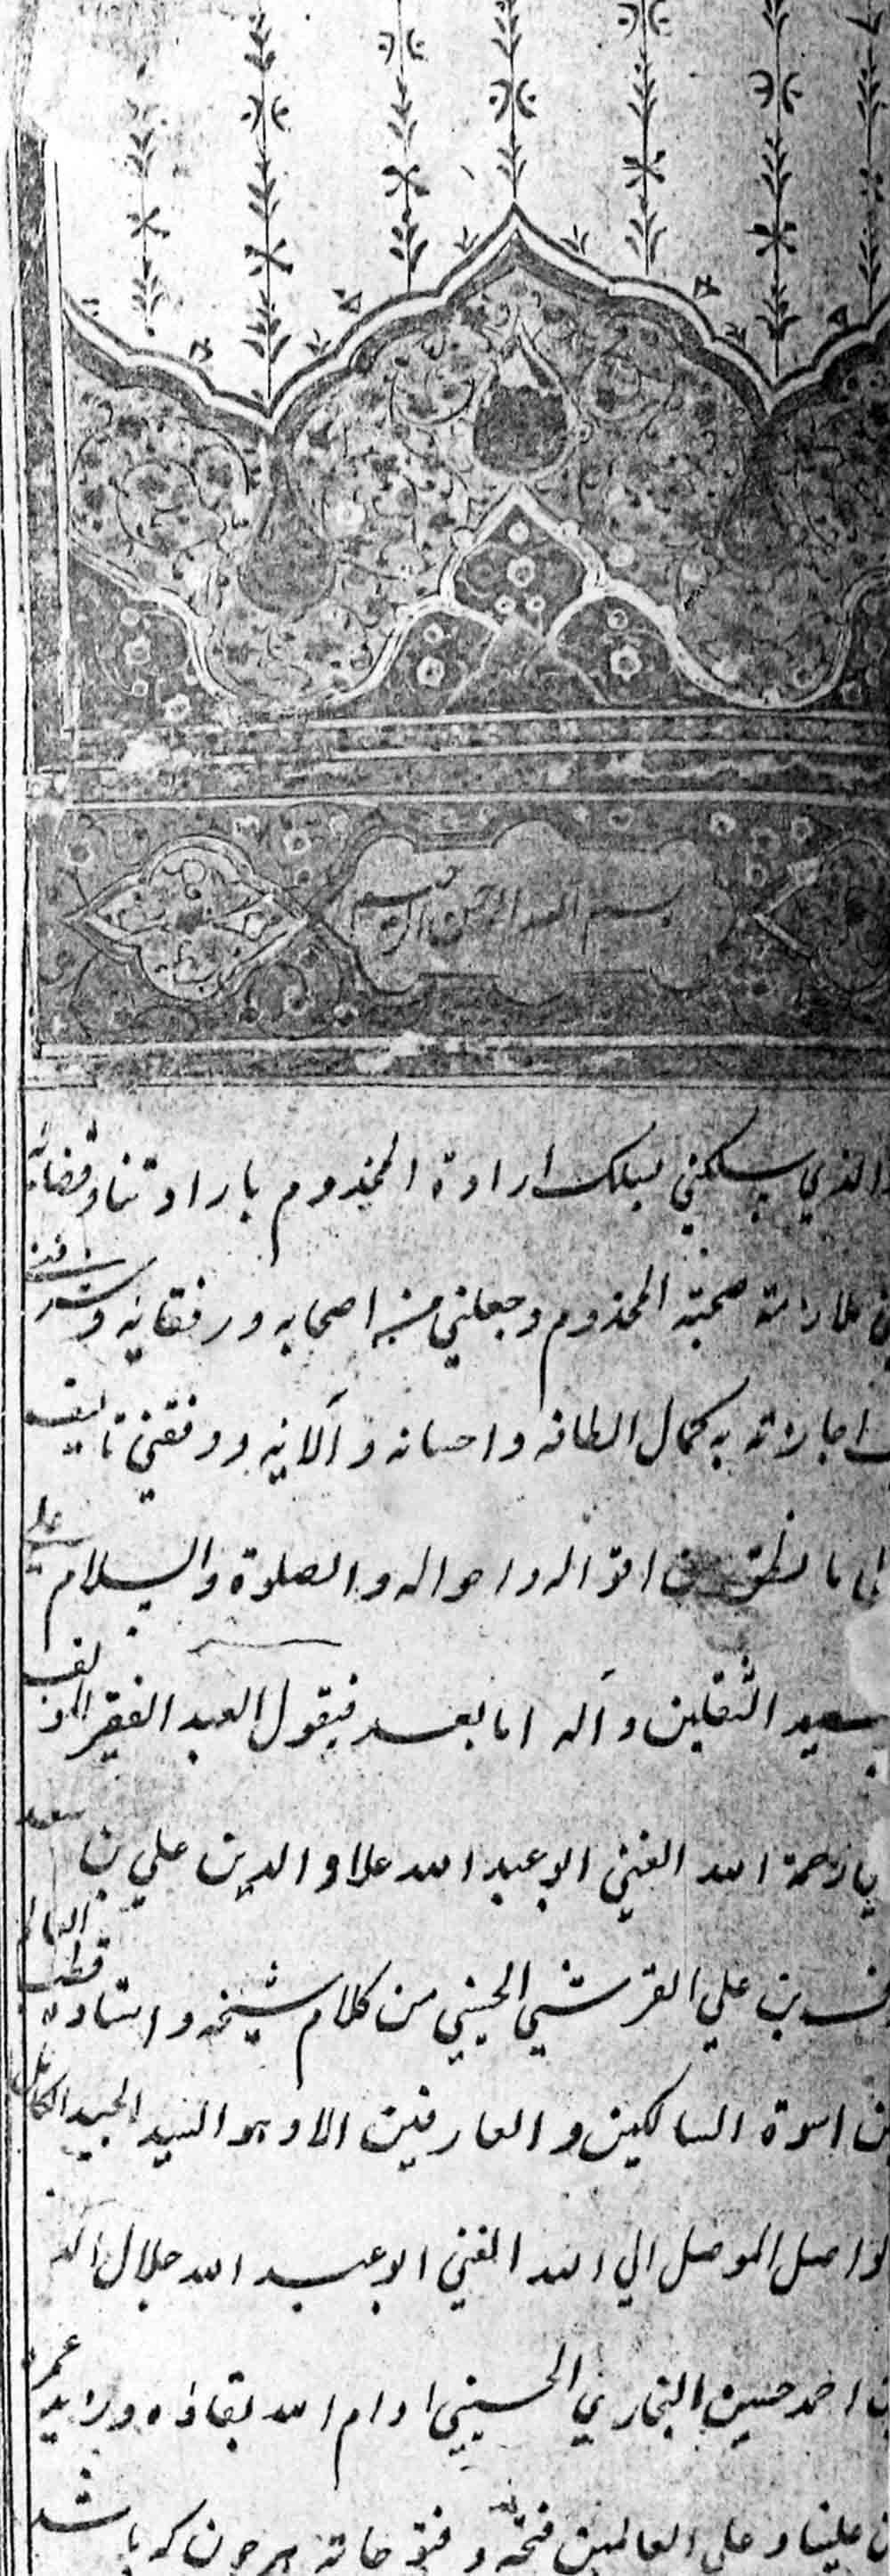 بسم الله الرحمن الرحیم
الذي یسلكني لسلك ارادة المخدوم بارادتنا وقضایه
صحبته المخدوم وجعلني من اصحابه ورفقایه و
اجازته به كمال الطافه واحسانه وآلایه ووفقني تالیف
ما نطق من اقواله واحواله والصلوة والسلام علی
سید الثقلین وآله اما بعد فیقول العبد الفقیر
رحمة الله الغني ابو عبد الله علاو الدین علي بن سعد
بن علي القرشي الحسیني من كلام شیخه واستاده قطب العالم
اسوة السالكین والعارفین الا وهو السید الجید الكامل
الواصل الموصل الي الله الغني ابو عبد الله جلال
احمد حسین البخاري الحسیني ادام الله بقاؤه ویزاید عمره
علینا وعلي العالمین فتحه وفتوحاته هر چون كه باشد